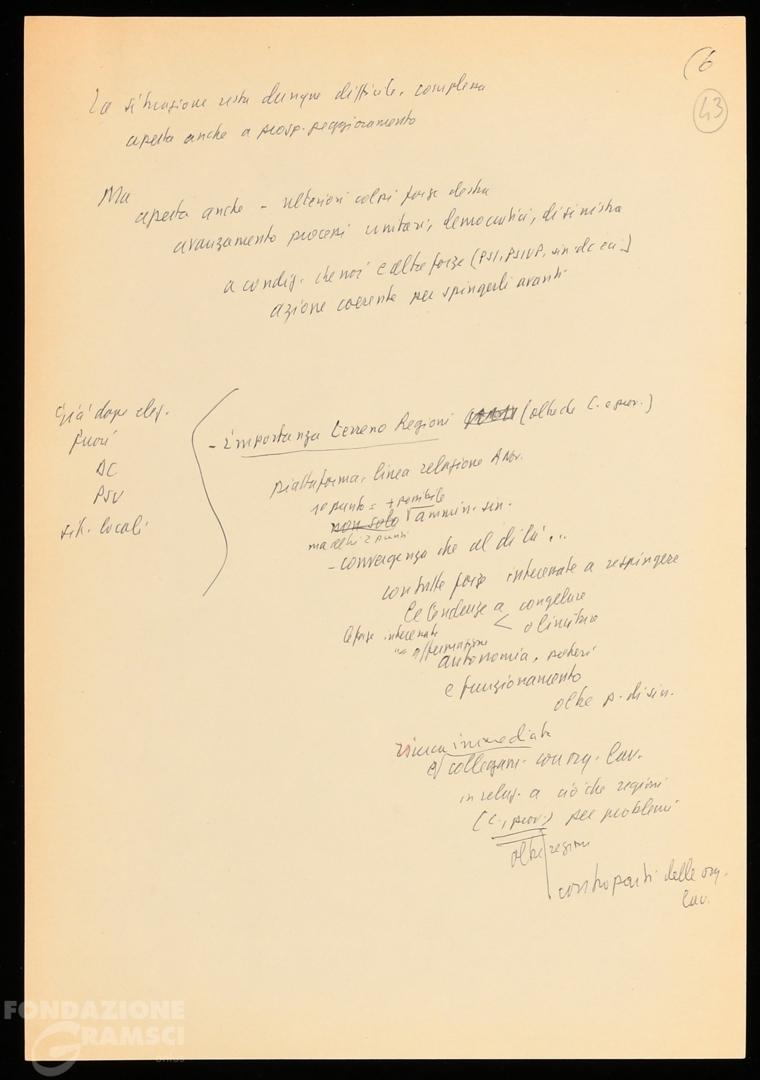 (6
43
La situazione resta dunque difficile, complessa
aperta anche a prosp. peggioramento
Ma
aperta anche - ulteriori colpi forze destra
avanzamento processi unitari, democratici, di sinistra
a condiz. che noi e altre forze (PSI, PSIUP, sin. dc ecc.)
azione coerente per spingerli avanti
Già dopo elez.
fuori
DC
PSU
sit. locali
- importanza terreno Regioni (oltre che C. e prov.)
piattaforma, linea relazione
1º punto = + possibile
non solo ammin. sin.
ma altri 2 punti
- convergenza che al di là...
con tutte forze interessate a respingere
le tendenze a congelare
< o limitare
le forze interessate
affermazione
autonomia, poteri
e funzionamento
oltre p. di sin.
immediata
collegam. con org. lav.
in relaz. a ciò che regioni
(C., prov.) per problemi
oltre regioni
controparti delle org.
lav.